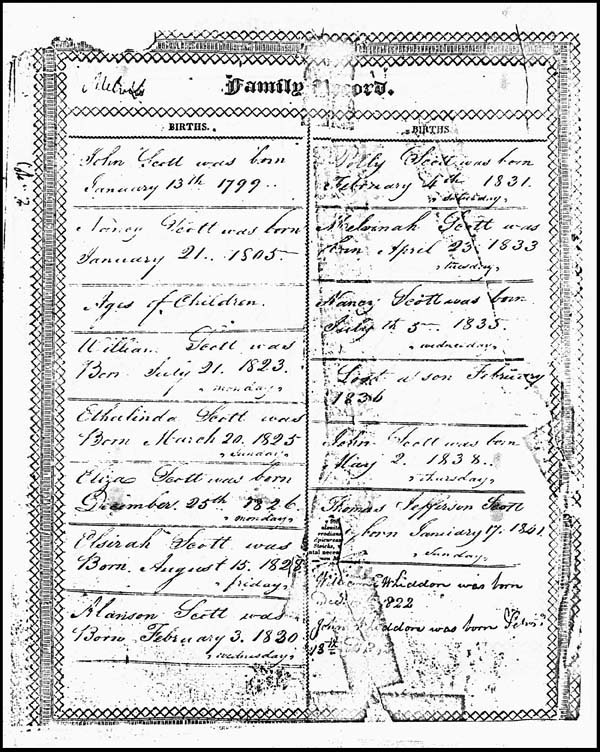 Family Record.
BIRTHS.
John Scott was born
January 13th 1799..
Nancy Scott was born
January 21.. 1805
Ages of Children.
William Scott was
Born July 21. 1823.
monday
Ethalinda Scott was
Born March 20. 1825
Sunday
Eliza Scott was born
December 25th 1826.
monday
Elsirah Scott was
Born. August 15. 1828
friday
Alanson Scott was
Born February 3. 1830
wednesday
BIRTHS
Polly Scott was born
February 4th 1831.
Saturday
Melvinah Scott was
born April 23. 1833
tuesday
Nancy Scott was born
July th 5 1835.
wednesday
Lost a son February
1836
John Scott was born
May 2. 1838..
thursday
Thomas Jefferson Scott
born January 17. 1841.
Sunday
Whiddon was born
1822
John Whiddon was born
18th